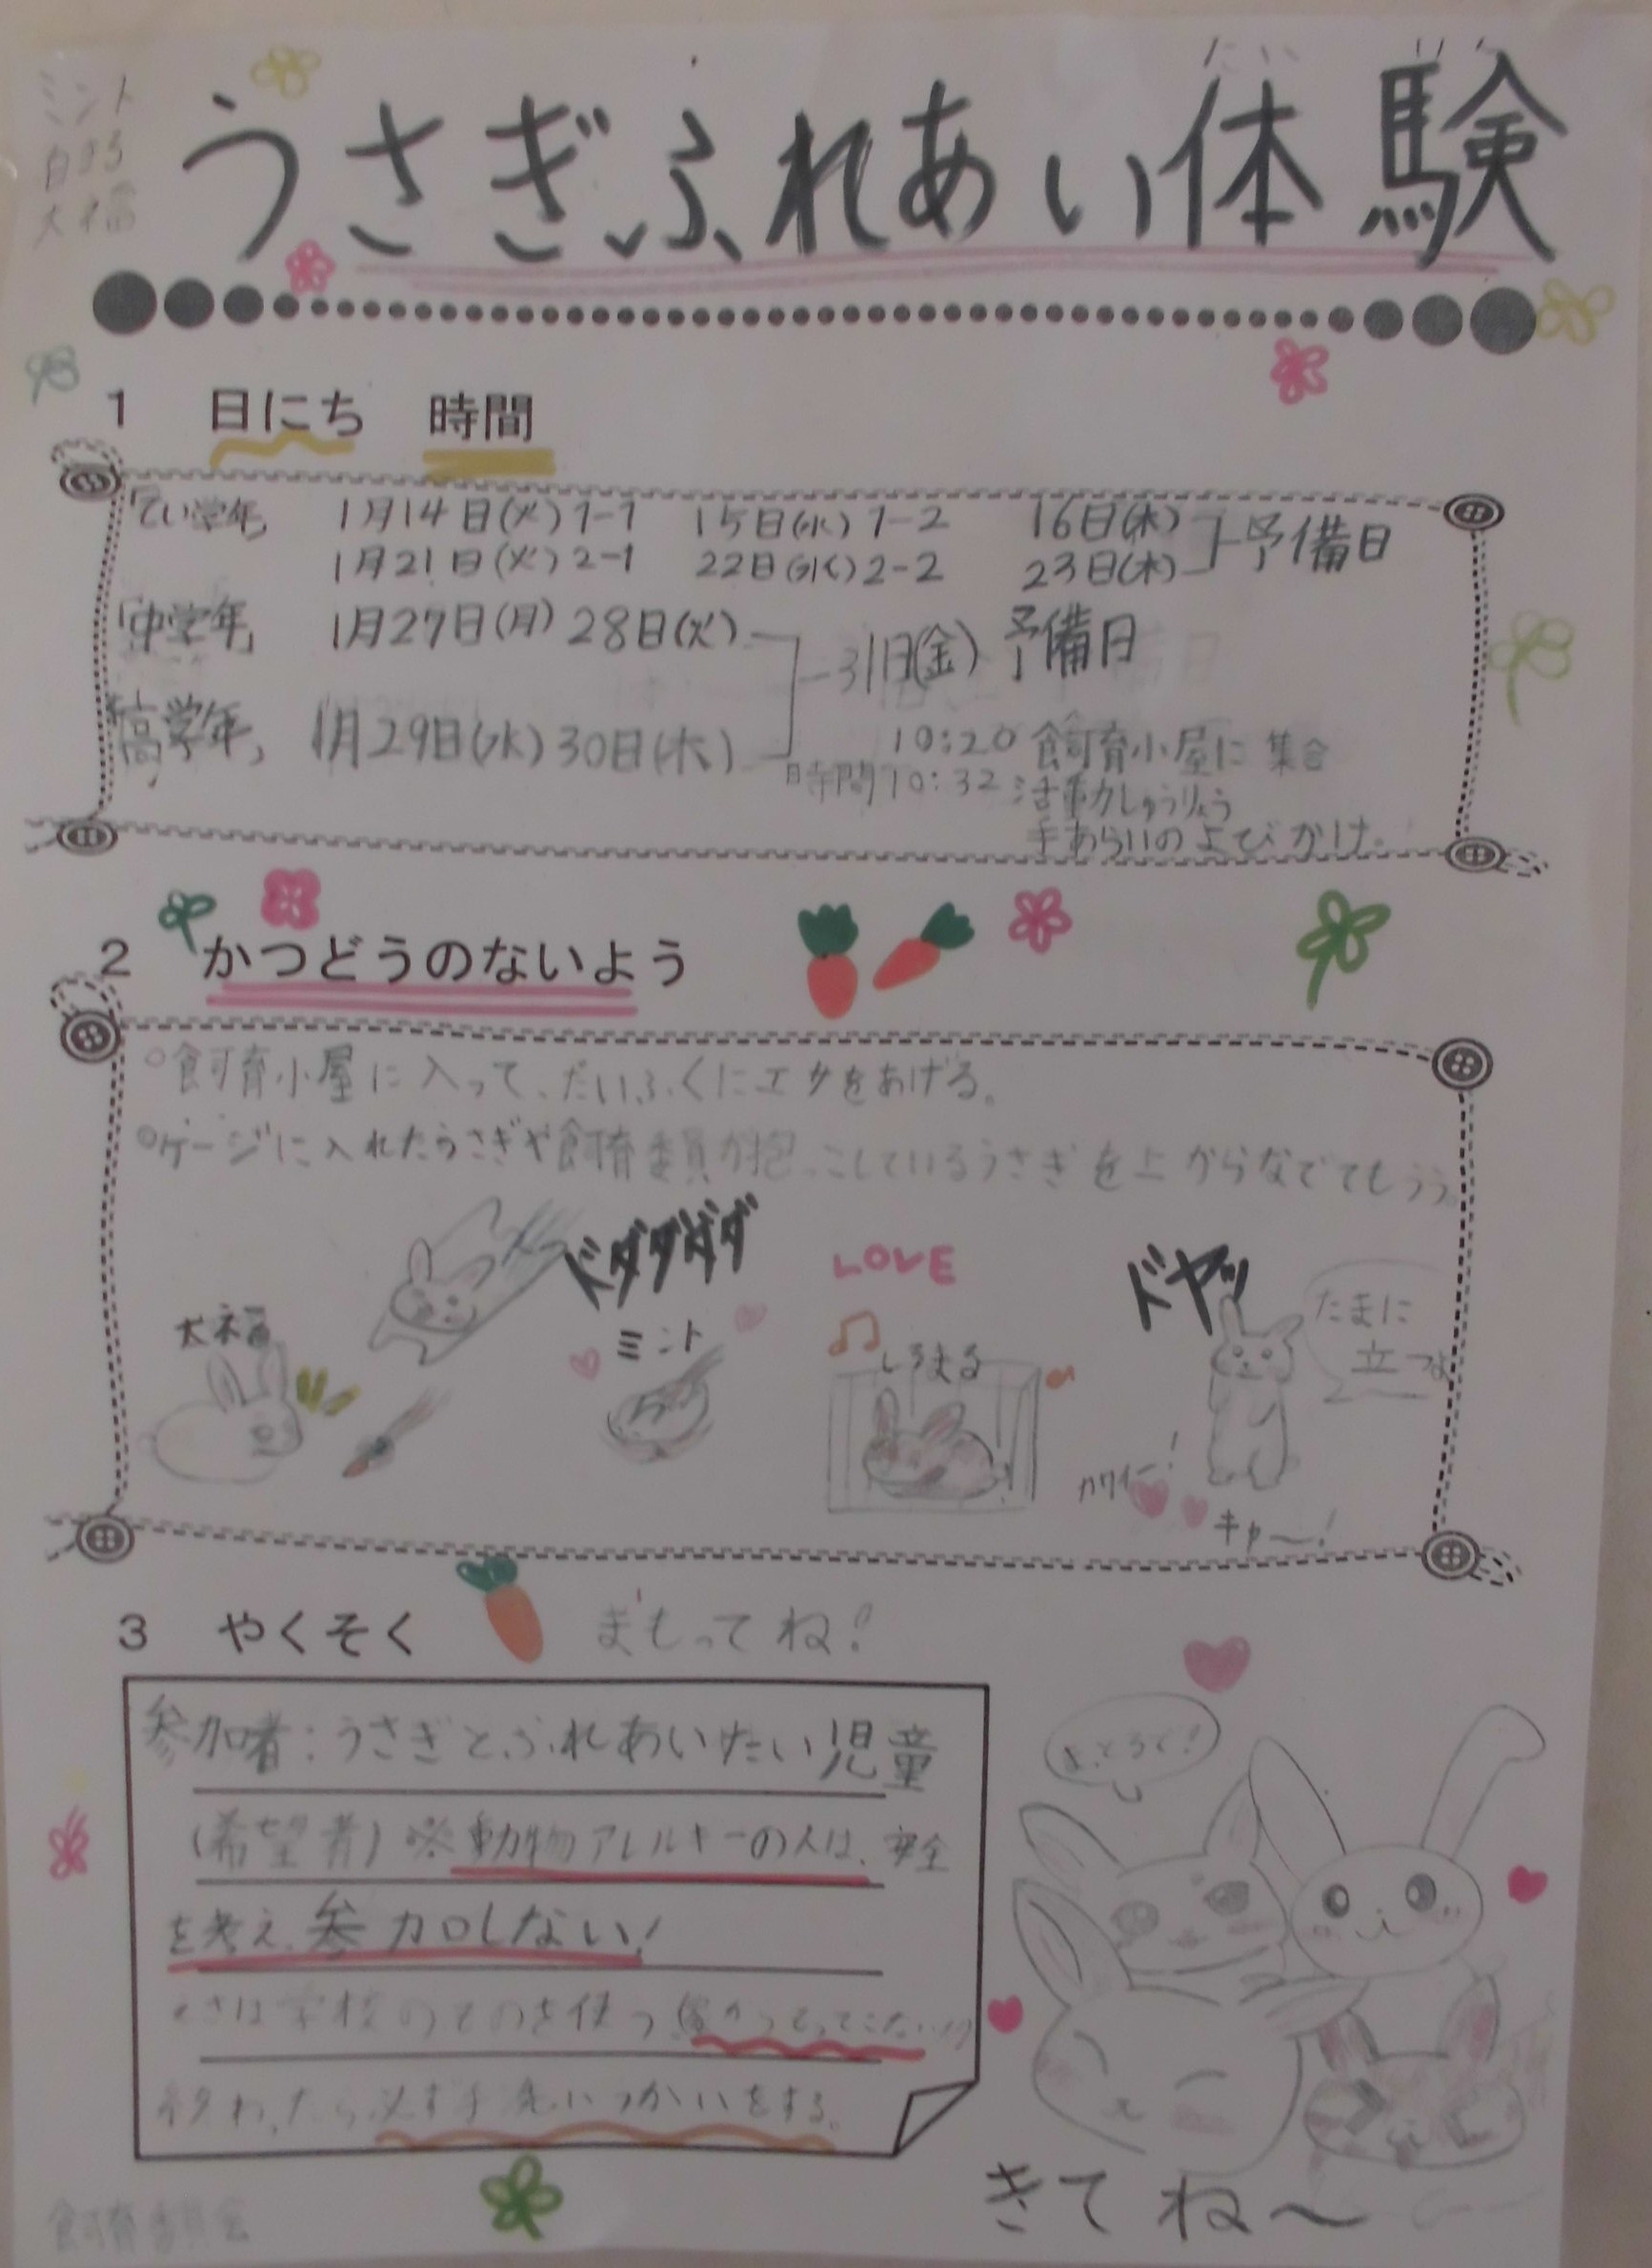 ミント
白玉
大福
たい けん
うさぎふれあい体験
1 日にち 時間
「てい学年」 1月14日(火)1-1 15日(水)1-2 16日(木)
1月21日(火)2-1 22日(水)2-2 23日(木)
予備日
「中学年」 1月27日(月) 28日(火)
31日(金) 予備日
「高学年」 1月29日(水) 30日(木)
10:20 飼育小屋に集合
時間 10:32 活動しゅうりょう
手あらいのよびかけ。
2 かつどうのないよう
○飼育小屋に入って、だいふくにエサをあげる。
○ゲージに入れたうさぎや飼育委員が抱っこしているうさぎを上からなでてもらう。
ドダダダダ
LOVE
ドヤッ
大福
ミント
しろまる
たまに
立つよ
カワイー!
キャ〜!
3 やくそく まもってね!
参加者:うさぎとふれあいたい児童
(希望者)※動物アレルギーの人は、安全
を考え、参加しない!
えさは学校のものを使う
終わったら必ず手洗いうがいをする。
きてね〜
飼育委員会